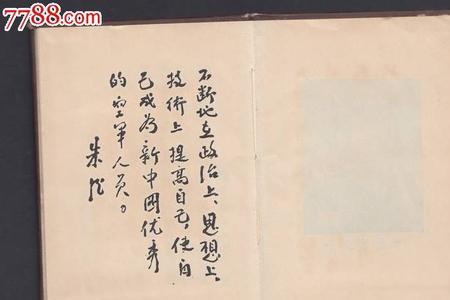 7788.com
不断地在政治上、思想上、
技術上提高自己，使自
己成为新中國优秀
的空軍人员。
朱德